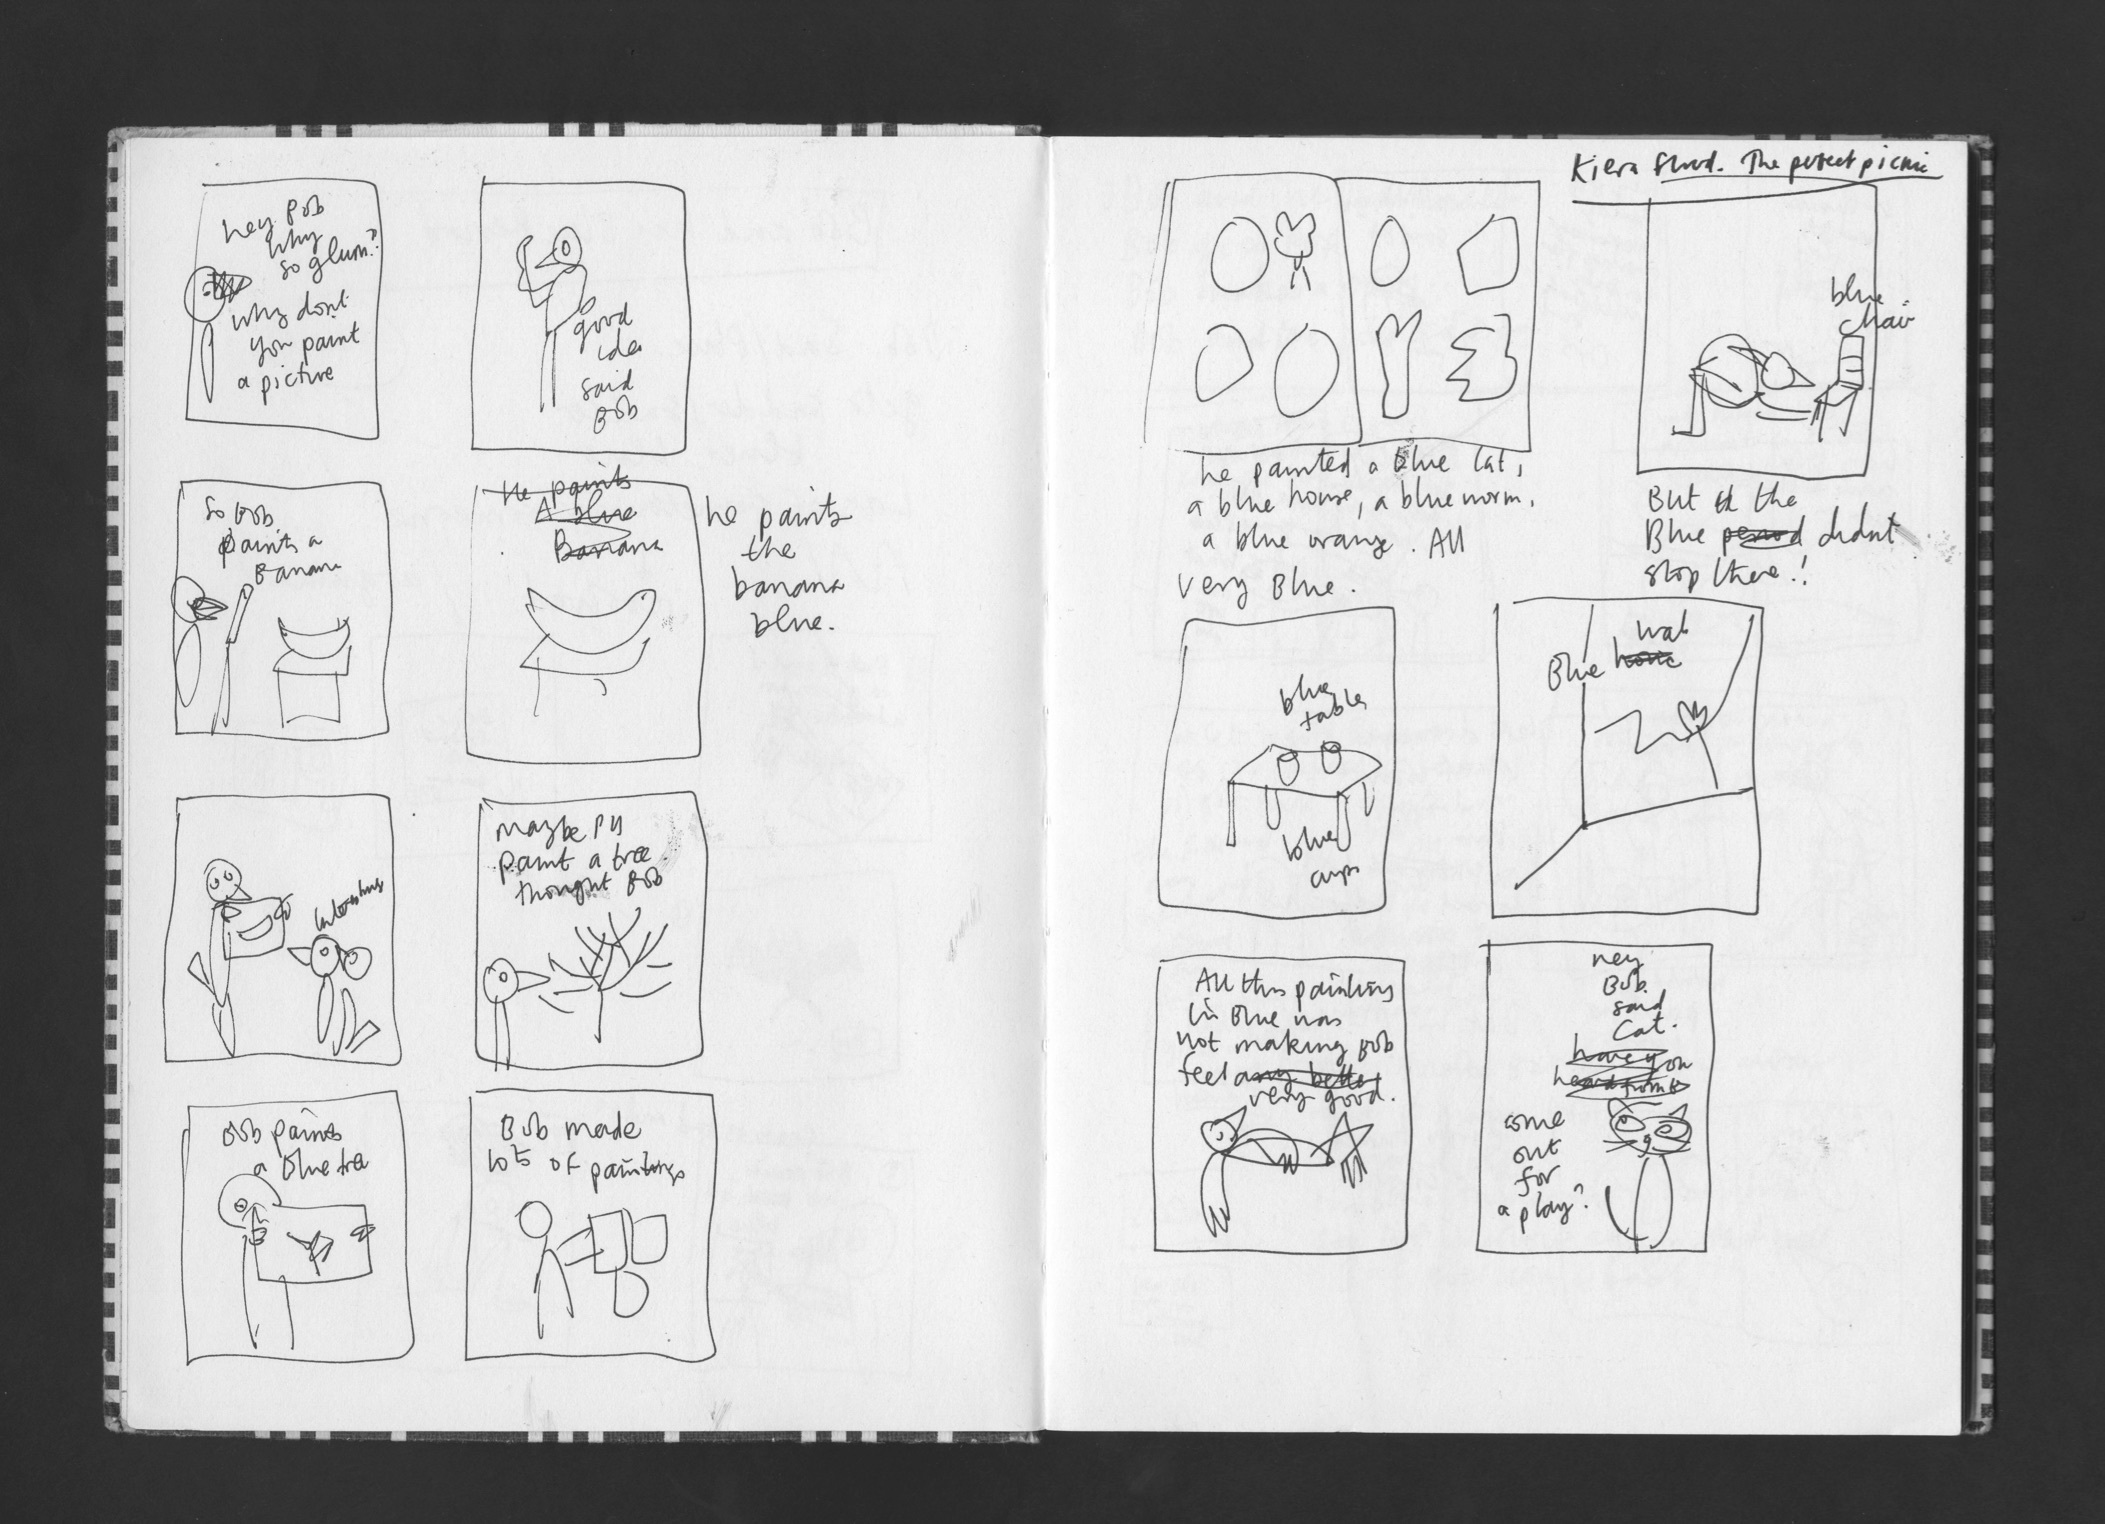 hey Bob
why
so glum?
why don't
you paint
a picture
good
idea
said
Bob
So Bob
paints a
Banana
He paints
A blue
Banana
he paints
the
banana
blue.
Interesting
maybe I'll
paint a tree
thought Bob
Bob paints
a blue tree
Bob made
lots of paintings
Kiera
The perfect picnic
he painted a blue cat,
a blue house, a blue worm,
a blue orange. All
very Blue.
blue
chair
But the
Blue period didnt
stop there!!
blue
table
blue
cups
wall
Blue
All this painting
in Blue was
not making Bob
feel any better
very good.
hey
Bob
said
Cat.
have you
heard from
come
out
for
a play?